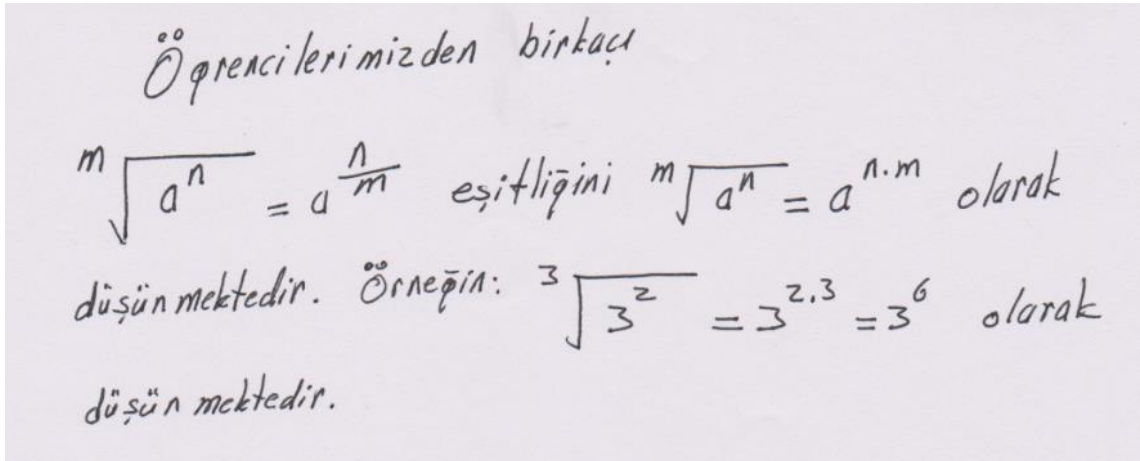 Öğrencilerimizden birkaçı
ᵐ√aⁿ = a^(n/m) eşitliğini ᵐ√aⁿ = a^(n.m) olarak
düşünmektedir. Örneğin: ³√3² = 3^(2.3) = 3⁶ olarak
düşünmektedir.